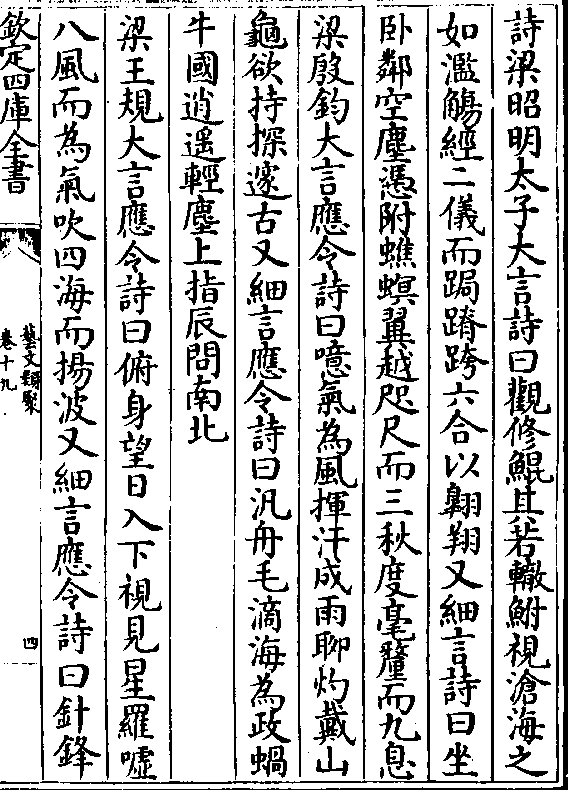 詩梁昭明太子大言詩曰觀修鯤其若轍鮒視滄海之
如濫觴經二儀而跼蹐跨六合以翺翔又細言詩曰坐
卧鄰空塵憑附蟭螟翼越咫尺而三秋度毫釐而九息
梁殷鈞大言應令詩曰噫氣為風揮汗成雨聊灼戴山
龜欲持探邃古又細言應令詩曰汎舟毛滴海為政蝸
牛國逍遥輕塵上指辰問南北
梁王規大言應令詩曰俯身望日入下視見星羅噓
八風而為氣吹四海而揚波又細言應令詩曰針鋒
欽定四庫全書
藝文類聚
卷十九
四